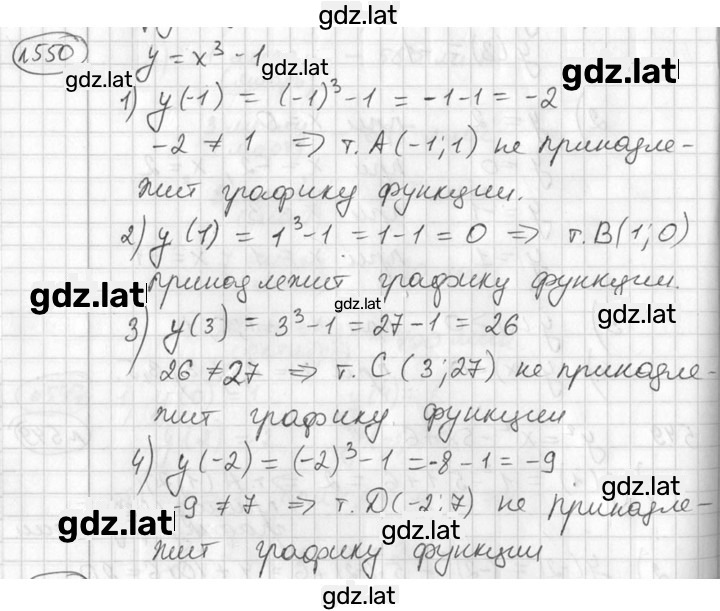 gdz.lat
№550
y = x³ - 1
gdz.lat
gdz.lat
gdz.lat
1) y(-1) = (-1)³-1 = -1-1 = -2
-2 ≠ 1 => т. A(-1;1) не принадле-
жит графику функции.
2) y(1) = 1³-1 = 1-1 = 0 => т. B(1;0)
принадлежит графику функции.
gdz.lat
gdz.lat
gdz.lat
3) y(3) = 3³-1 = 27-1 = 26
26 ≠ 27 => т. C (3;27) не принадле-
жит графику функции
4) y(-2) = (-2)³-1 = -8-1 = -9
-9 ≠ 7 => т. D(-2;7) не принадле-
gdz.lat
gdz.lat
gdz.lat
жит графику функции
gdz.lat